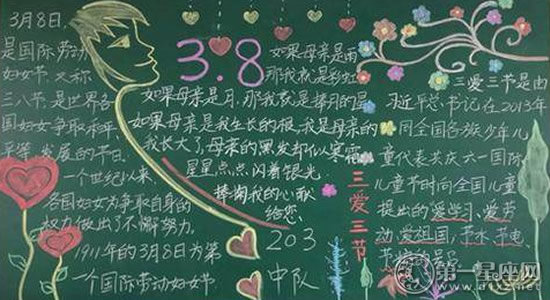 3月8日,
是国际劳动
妇女节.又称
三八节.是世界各
国妇女争取和平
平等 发展的节日.
一个世纪以来,
各国妇女为争取自身的
权力做出了不懈努力.
1911年的3月8日为第
一个国际劳动妇女节.
3.8
如果母亲是雨
那我就是彩虹
如果母亲是月,那我就是捧月的星
如果母亲是我生长的根,我是母亲的
我长大了,母亲的黑发却似寒霜
星星点点闪着银光
捧掬我的心献
给您
203
中队
三爱三节
三爱三节是由
习近平总书记在2013年
同全国各族少年儿
童代表共庆六一国际
儿童节时向全国儿童
提出的爱学习、爱劳
动、爱祖国,节水、节电、
第一星座网
www.d1xz.net